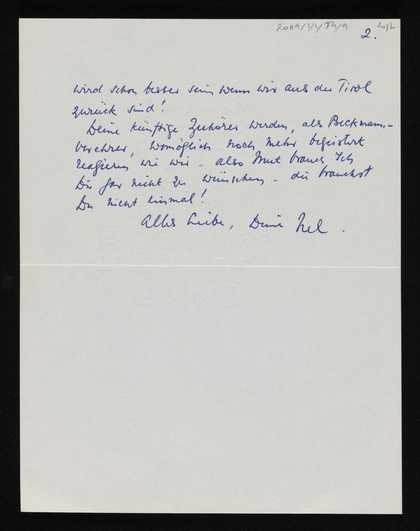 2.
wird schon besser sein wenn wir aus dem Tirol
zurück sind!
Deine künftige Zuhörer werden, als Beckmann-
verehrer, womöglich noch mehr begeistert
reagieren wie wir – also Mut brauch ich
Dir gar nicht zu wünschen – die brauchst
Du nicht einmal!
Alles Liebe, Deine